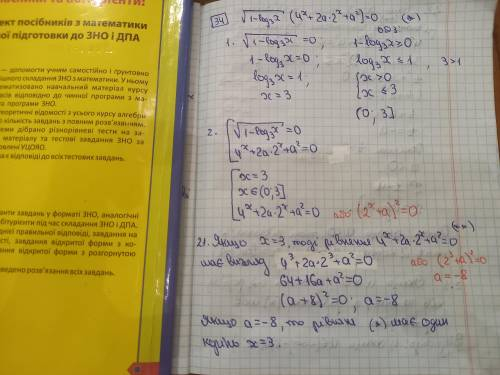 ект посібників з математики
ої підготовки до ЗНО і ДПА
— допомогти учням самостійно і ґрунтовно
програми ЗНО.
теоретичні відомості з усього курсу алгебри
кість завдань з повним розв'язанням.
ми дібрано різнорівневі тести на за-
матеріалу та тестові завдання ЗНО за
овлені УЦОЯО.
а є відповіді до всіх тестових завдань.
анти завдань у форматі ЗНО, аналогічні
бітурієнти під час складання ЗНО і ДПА.
днієї правильної відповіді, завдання на
сті, завдання відкритої форми з ко-
ання відкритої форми з розгорнутою
ведено розв'язання всіх завдань.
34 √(1-log₃x) (4ˣ+2a·2ˣ+a²)=0 (*)
ОДЗ:
1. √(1-log₃x) = 0, 1-log₃x≥0
1-log₃x=0, log₃x ≤ 1, 3>1
log₃x=1, { x>0
x=3 x ≤ 3
(0; 3]
2. √(1-log₃x) = 0
4ˣ+2a·2ˣ+a²=0
x=3
x∈(0;3]
4ˣ+2a·2ˣ+a²=0 або (2ˣ+a)²=0
21. Якщо x=3, тоді рівняння 4ˣ+2a·2ˣ+a²=0 (**)
має вигляд 4³+2a·2³+a²=0 або (2³+a)²=0
64+16a+a²=0 a=-8
(a+8)²=0; a=-8
Якщо a=-8, то рівнян (*) має один
корінь x=3.